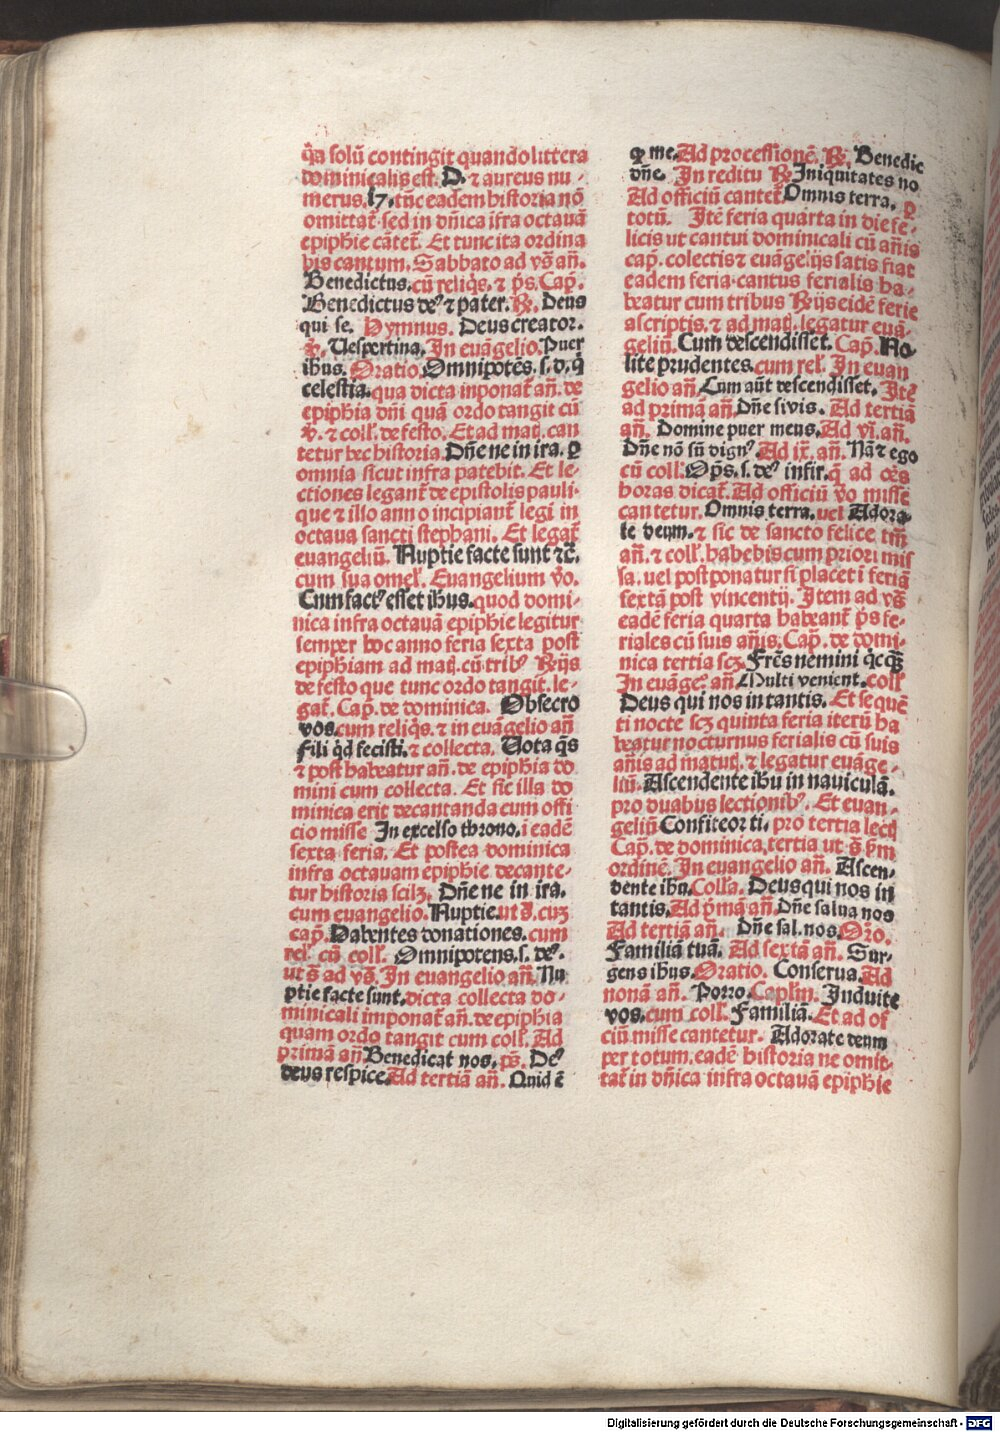 q̃a solũ contingit quando littera
dominicalis est. D. ⁊ aureus nu⸗
merus. 17. tũc eadem historia nõ
omittat̃. sed in dñica ifra octauã
epiphie cãtet̃. Et tunc ita ordina
bis cantum. Sabbato ad vs̃ añ.
Benedictus. cũ reliq̃s. ⁊ p̃s. Cap̃.
Benedictus deꝰ ⁊ pater. ℟. Deus
qui se. Hymnus. Deus creator.
℣. Uespertina. In euãgelio. Puer
ihus. Oratio. Omnipotẽs. s. d. q̃
celestia. qua dicta inponat̃ añ. de
epiphia dñi quã ordo tangit cũ
℣. ⁊ coll̃. de festo. Et ad mat̃. can
tetur hec historia. Dñe ne in ira. ꝑ
omnia sicut infra patebit. Et le⸗
ctiones legant̃ de epistolis pauli⸗
que ⁊ illo anno incipiant̃ legi in
octaua sancti stephani. Et legat̃
euangeliũ. Nuptie facte sunt ⁊c̃.
cum sua omel̃. Euangelium v̊o.
Cum factꝰ esset ihus. quod domi⸗
nica infra octauã epiphie legitur
semper hoc anno feria sexta post
epiphiam ad mat̃. cũ tribꝰ ℟ijs
de festo que tunc ordo tangit. le⸗
gat̃. Cap̃. de dominica. Obsecro
vos. cum reliq̃s. ⁊ in euãgelio añ
Fili q̃d fecisti. ⁊ collecta. Uota q̃s
⁊ post habeatur añ. de epiphia do
mini cum collecta. Et sic illa do
minica erit decantanda cum offi
cio misse In excelso throno. i eadẽ
sexta feria. Et postea dominica
infra octauam epiphie decante⸗
tur historia scilꝫ. Dñe ne in ira.
cum euangelio. Nuptie. ut s̃. cuꝫ
cap̃. Habentes donationes. cum
rel̃. cũ coll̃. Omnipotens. s. deꝰ.
ut s̃ ad vs̃. In euangelio añ. Nu
ptie facte sunt. dicta collecta do⸗
minicali imponat̃ añ. de epiphia
quam ordo tangit cum coll̃. Ad
primã añ. Benedicat nos. ps̃. Deꝰ
deus respice. Ad tertiã añ. Quid ẽ
ꝙ me. Ad processionẽ. ℟. Benedic
dñe. In reditu ℟ Iniquitates no
Ad officiũ cantet̃. Omnis terra. ꝑ
totũ. Itẽ feria quarta in die fe⸗
licis ut cantui dominicali cũ añis
cap̃. colectis ⁊ euãgelijs satis fiat
eadem feria. cantus ferialis ha⸗
beatur cum tribus ℟ijs eidẽ ferie
ascriptis. ⁊ ad mat̃. legatur euã⸗
geliũ. Cum descendisset. Cap̃. No⸗
lite prudentes. cum rel̃. In euan
gelio añ. Cum aũt descendisset. Itẽ
ad primã añ. Dñe si vis. Ad tertiã
añ. Domine puer meus. Ad vi. añ.
Dñe nõ sũ dignꝰ. Ad ix. añ. Nã ⁊ ego
cũ coll̃. Op̃s. s. deꝰ infir. q̃ ad oẽs
horas dicat̃. Ad officiũ v̊o misse
cantetur. Omnis terra. uel Adora⸗
te deum. ⁊ sic de sancto felice tm̃
añ. ⁊ coll̃. habebis cum priori mis
sa. uel postponatur si placet i feriã
sextã post vincentij. Item ad vs̃
eadẽ feria quarta habeant̃ p̃s fe⸗
riales cũ suis añis. Cap̃. de domi⸗
nica tertia scꝫ. Fr̃es nemini q̃cq̃ꝫ
In euãgeꝰ. añ. Multi venient. coll̃
Deus qui nos in tantis. Et sequẽ
ti nocte scꝫ quinta feria iterũ ha
beatur nocturnus ferialis cũ suis
añis ad matut̃. ⁊ legatur euãge⸗
liũ. Ascendente ihu in nauiculã.
pro duabus lectionibꝰ. Et euan⸗
geliũ Confiteor ti. pro tertia lect̃
Cap̃. de dominica tertia ut s̃ p̃m
ordinẽ. In euangelio añ. Ascen⸗
dente ihu. Coll̃a. Deus qui nos in
tantis. Ad p̃mã añ. Dñe salua nos
Ad tertiã añ. Dñe sal. nos. Or̃o.
Familiã tuã. Ad sextã añ. Sur⸗
gens ihus. Oratio. Conserua. Ad
nonã añ. Porro. Capl̃m. Induite
vos. cum coll̃. Familiã. Et ad of
ciũ misse cantetur. Adorate deum
per totum. eadẽ historia ne omit⸗
tat̃ in dñica infra octauã epiphie
Digitalisierung gefördert durch die Deutsche Forschungsgemeinschaft - DFG